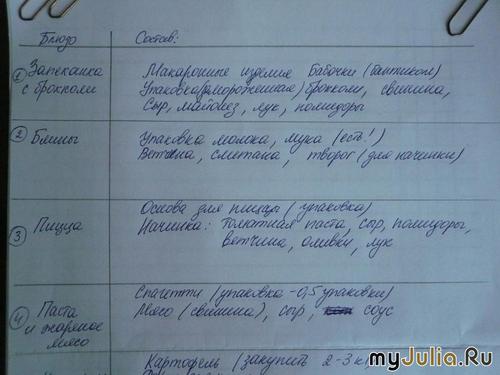 Блюдо Состав:
1 Запеканка с брокколи
Макаронные изделия Бабочки (бантиком)
Упаковка (замороженная) брокколи, свинина,
Сыр, майонез, лук, помидоры
2 Блины
Упаковка молока, мука (есть!)
Ветчина, сметана, творог (для начинки)
3 Пицца
Основа для пиццы (упаковка)
Начинка: Томатная паста, сыр, помидоры,
ветчина, оливки, лук
4 Паста и жареное мясо
Спагетти (упаковка - 0,5 упаковки)
Мясо (свинина), сыр, соус
Картофель (закупить 2-3 к
myJulia.Ru